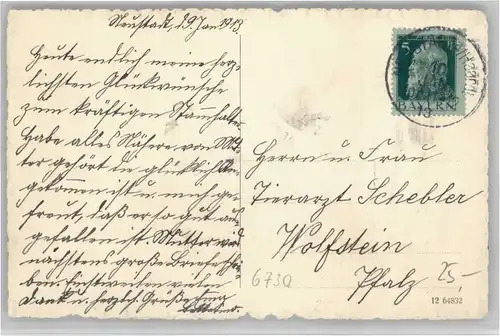 Neustadt, 29. Jan 1913.
Heute endlich meine herz-
lichsten Glückwünsche
zum kräftigen Stammhalter
Habe alles Nähere von Mut-
ter gehört u. glücklich An-
gekommen ist u. mich ge-
freut, daß er so gut aus-
gefallen ist. Mutter wird
nächstens große Briefe schrei-
ben. Einstweilen vielen
Dank u. herzl. Grüße
5
BAYERN
Herrn u. Frau
Tierarzt Schebler
Wolfstein
Pfalz
6730
25,-
12 64832